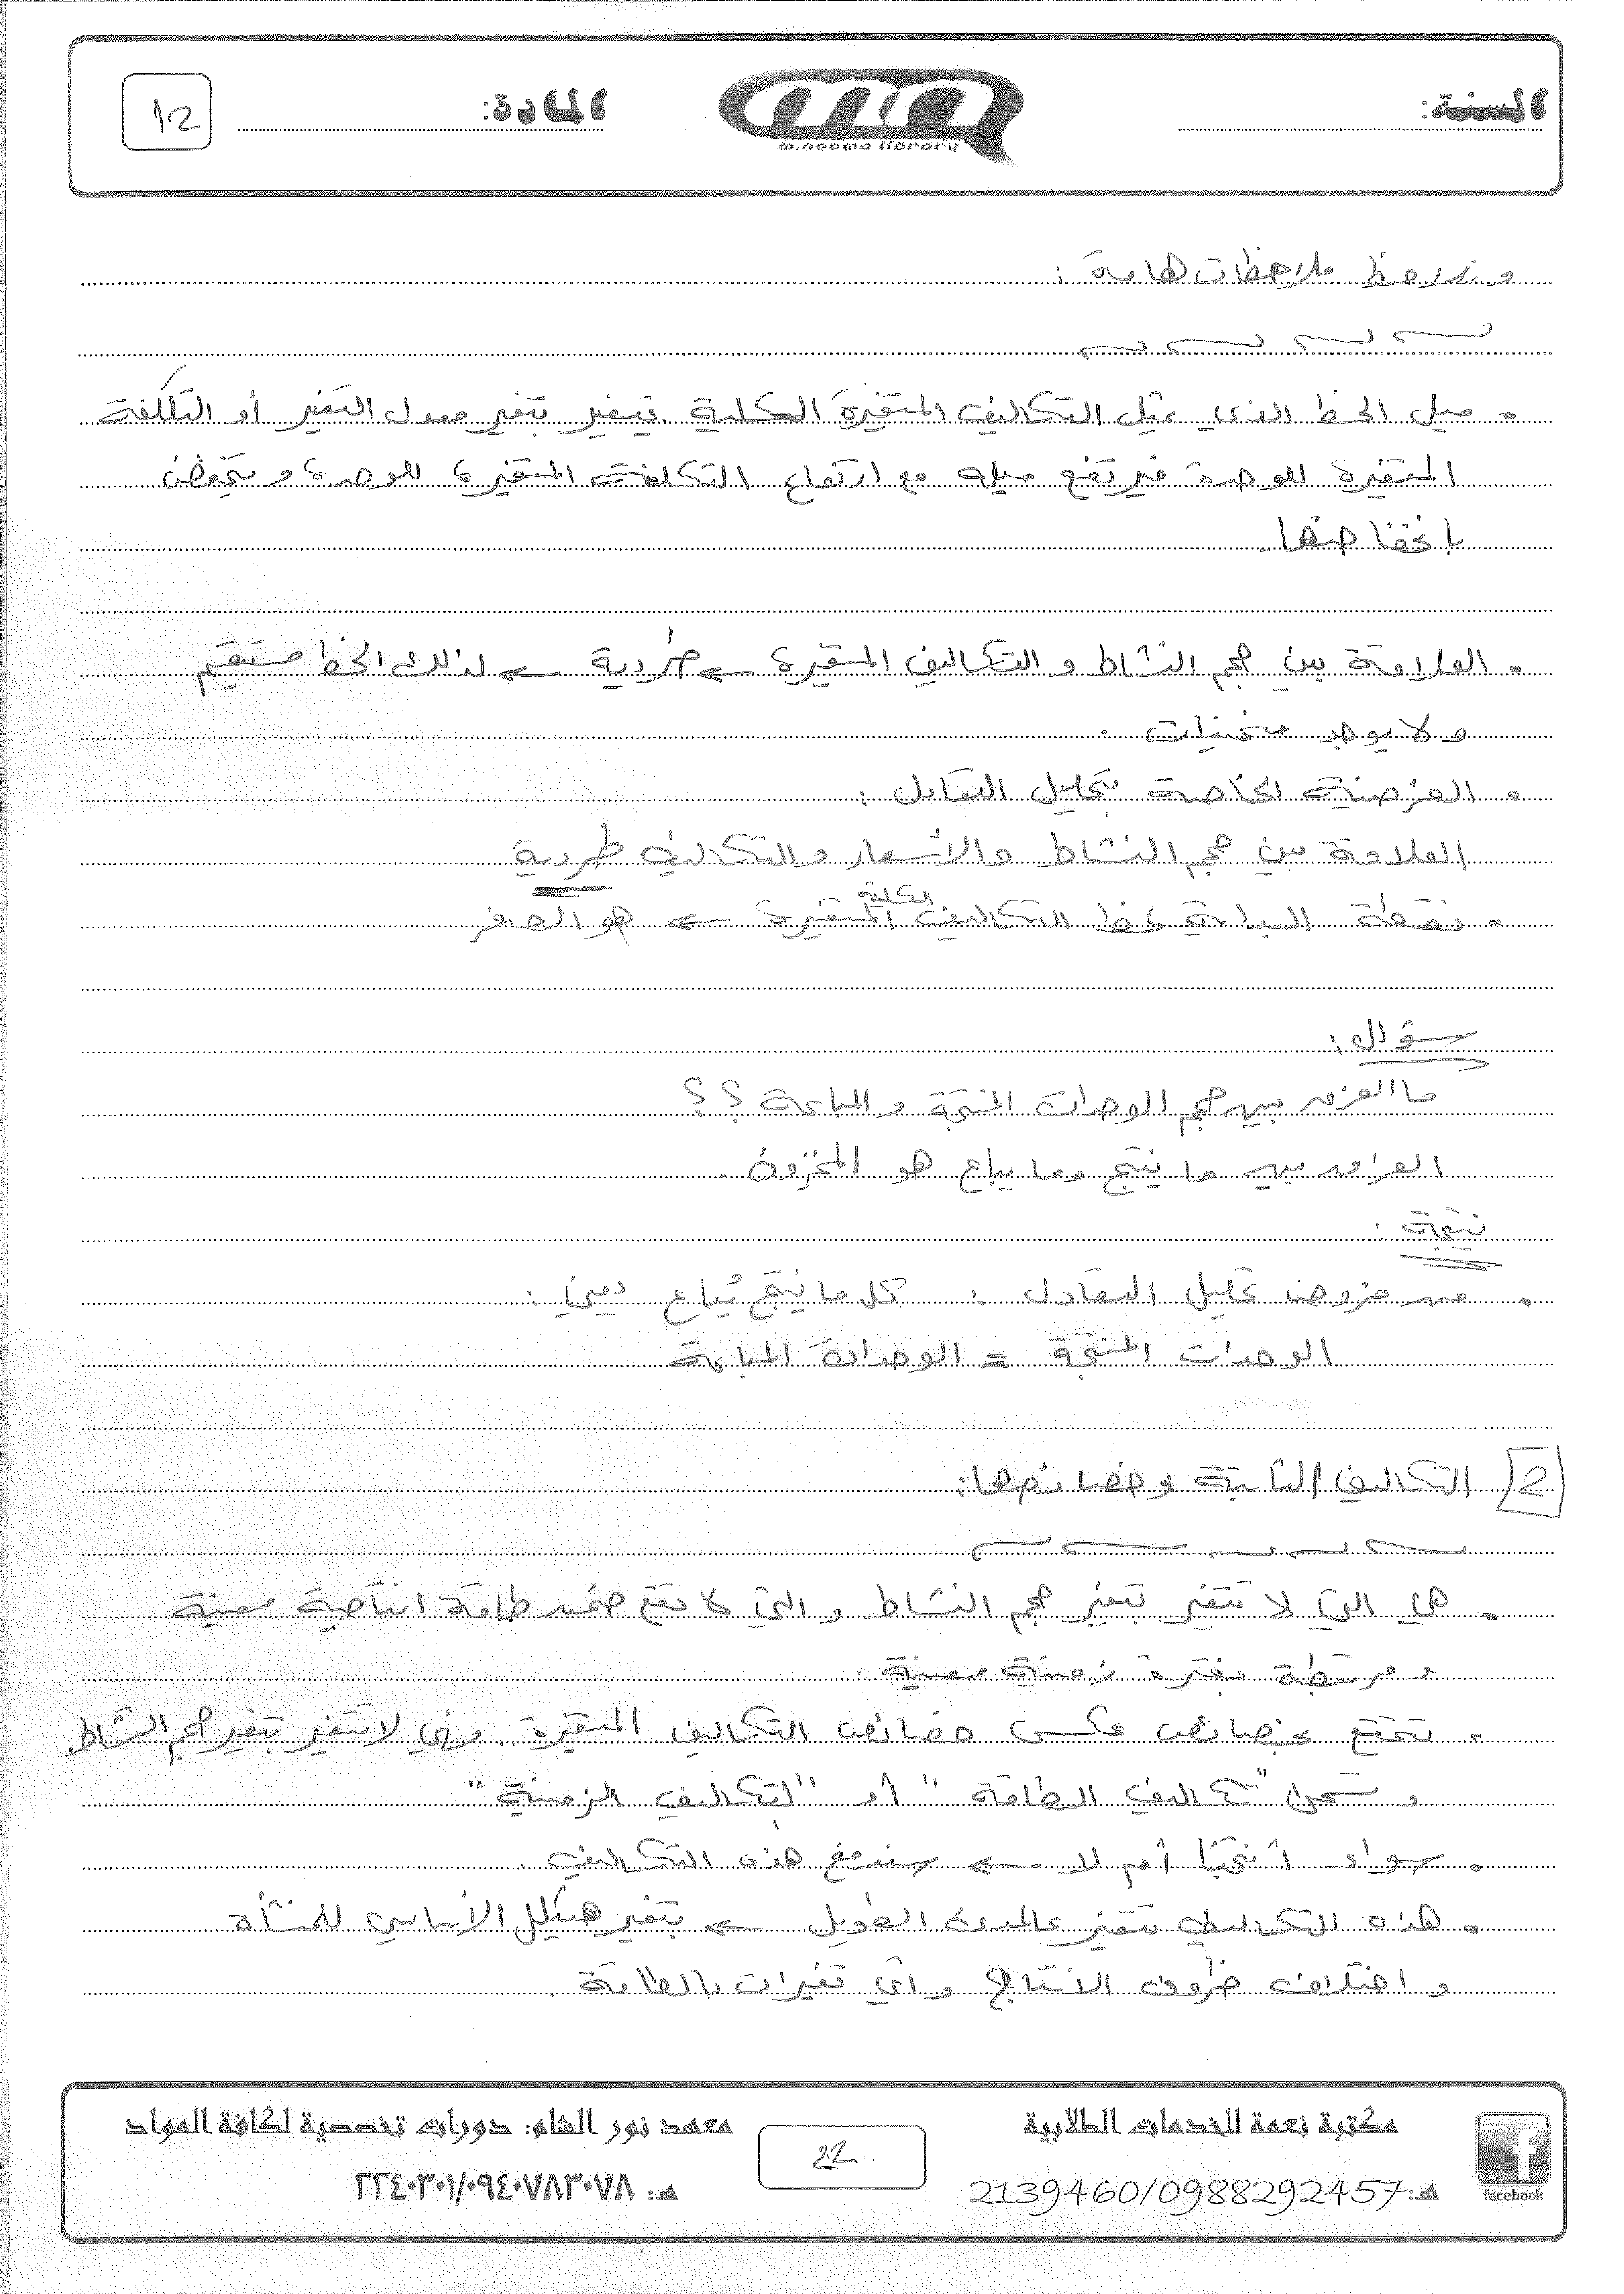 السنة:
m.neama library
المادة:
12
و نلاحظ ملاحظات هامة :
• ميل الخط الذي يمثل التكاليف المتغيرة الكلية يتغير بتغير معدل التغير أو التكلفة
المتغيرة للوحدة فيرتفع ميله مع ارتفاع التكلفة المتغيرة للوحدة و ينخفض
بانخفاضها.
• العلاقة بين حجم النشاط و التكاليف المتغيرة ← طردية ← لذلك الخط مستقيم
و لا يوجد منحنيات .
• الفرضية الخاصة بتحليل التعادل :
العلاقة بين حجم النشاط والأسعار والتكاليف طردية
• نقطة البداية لخط التكاليف المتغيرة الكلية ← هو الصفر
سؤال :
ما الفرق بين حجم الوحدات المنتجة و المباعة ؟؟
الفرق بين ما ينتج وما يباع هو المخزون .
نتيجة :
• من فروض تحليل التعادل : كل ما ينتج يُباع يعني :
الوحدات المنتجة = الوحدات المباعة
2 التكاليف الثابتة و خصائصها:
• هي التي لا تتغير بتغير حجم النشاط و التي لا تقع ضمن طاقة انتاجية معينة
و مرتبطة بفترة زمنية معينة .
• تتمتع بخصائص عكس خصائص التكاليف المتغيرة وهي لا تتغير بتغير حجم النشاط
و تسمى "تكاليف الطاقة" أو "التكاليف الزمنية"
• سواء أنتجنا أم لا ← سندفع هذه التكاليف .
• هذه التكاليف تتغير عالمدى الطويل ← بتغير هيكل الأساسي للمنشأة
و اختلاف ظروف الانتاج و أي تغيرات بالطاقة .
مكتبة نعمة للخدمات الطلابية
هـ: 2139460/0988292457
facebook
22
معهد نور الشام: دورات تخصصية لكافة المواد
هـ: ٢٢٤٠٣٠١/٠٩٤٠٧٨٣٠٧٨